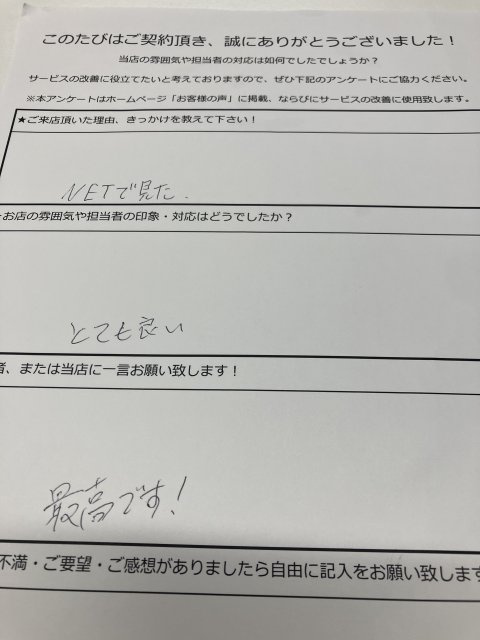 このたびはご契約頂き、誠にありがとうございました！
当店の雰囲気や担当者の対応は如何でしたでしょうか？
サービスの改善に役立てたいと考えておりますので、ぜひ下記のアンケートにご協力ください。
※本アンケートはホームページ「お客様の声」に掲載、ならびにサービスの改善に使用致します。
★ご来店頂いた理由、きっかけを教えて下さい！
NETで見た.
お店の雰囲気や担当者の印象・対応はどうでしたか？
とても良い
者、または当店に一言お願い致します！
最高です！
不満・ご要望・ご感想がありましたら自由に記入をお願い致します